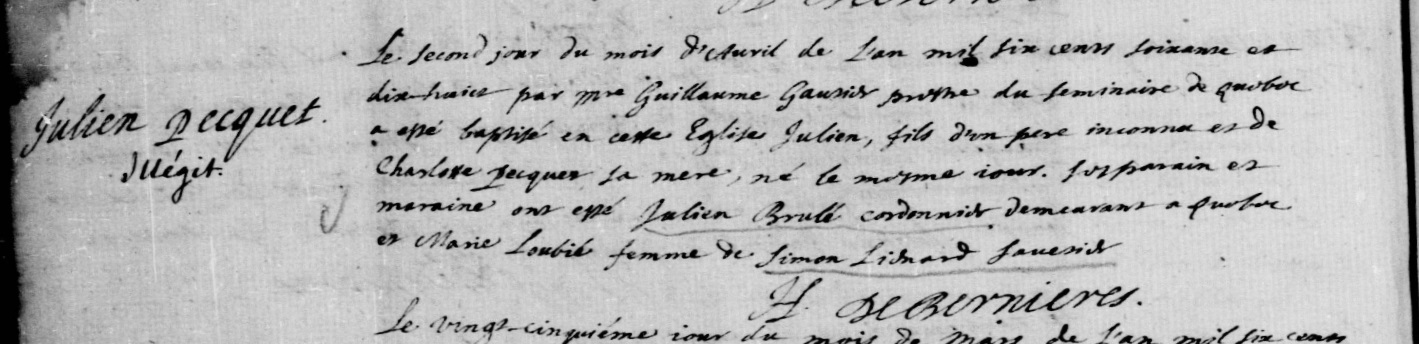 Le second jour du mois d'Avril de l'an mil six cents soixante et
dix-huict par mre Guillaume Gautier prestre du seminaire de quebec
Julien Pecquet.
a esté baptisé en cette Eglise Julien, fils d'un pere inconnu et de
Illégit.
Charlotte Pecquet sa mere, né le mesme iour. ses parain et
maraine ont esté Julien Brulé cordonnier demeurant a Quebec
et Marie Loubié femme de Simon Lienard savetier
H. DeBernieres.
Le vingt-cinquiéme iour du mois de Mars de l'an mil six cents